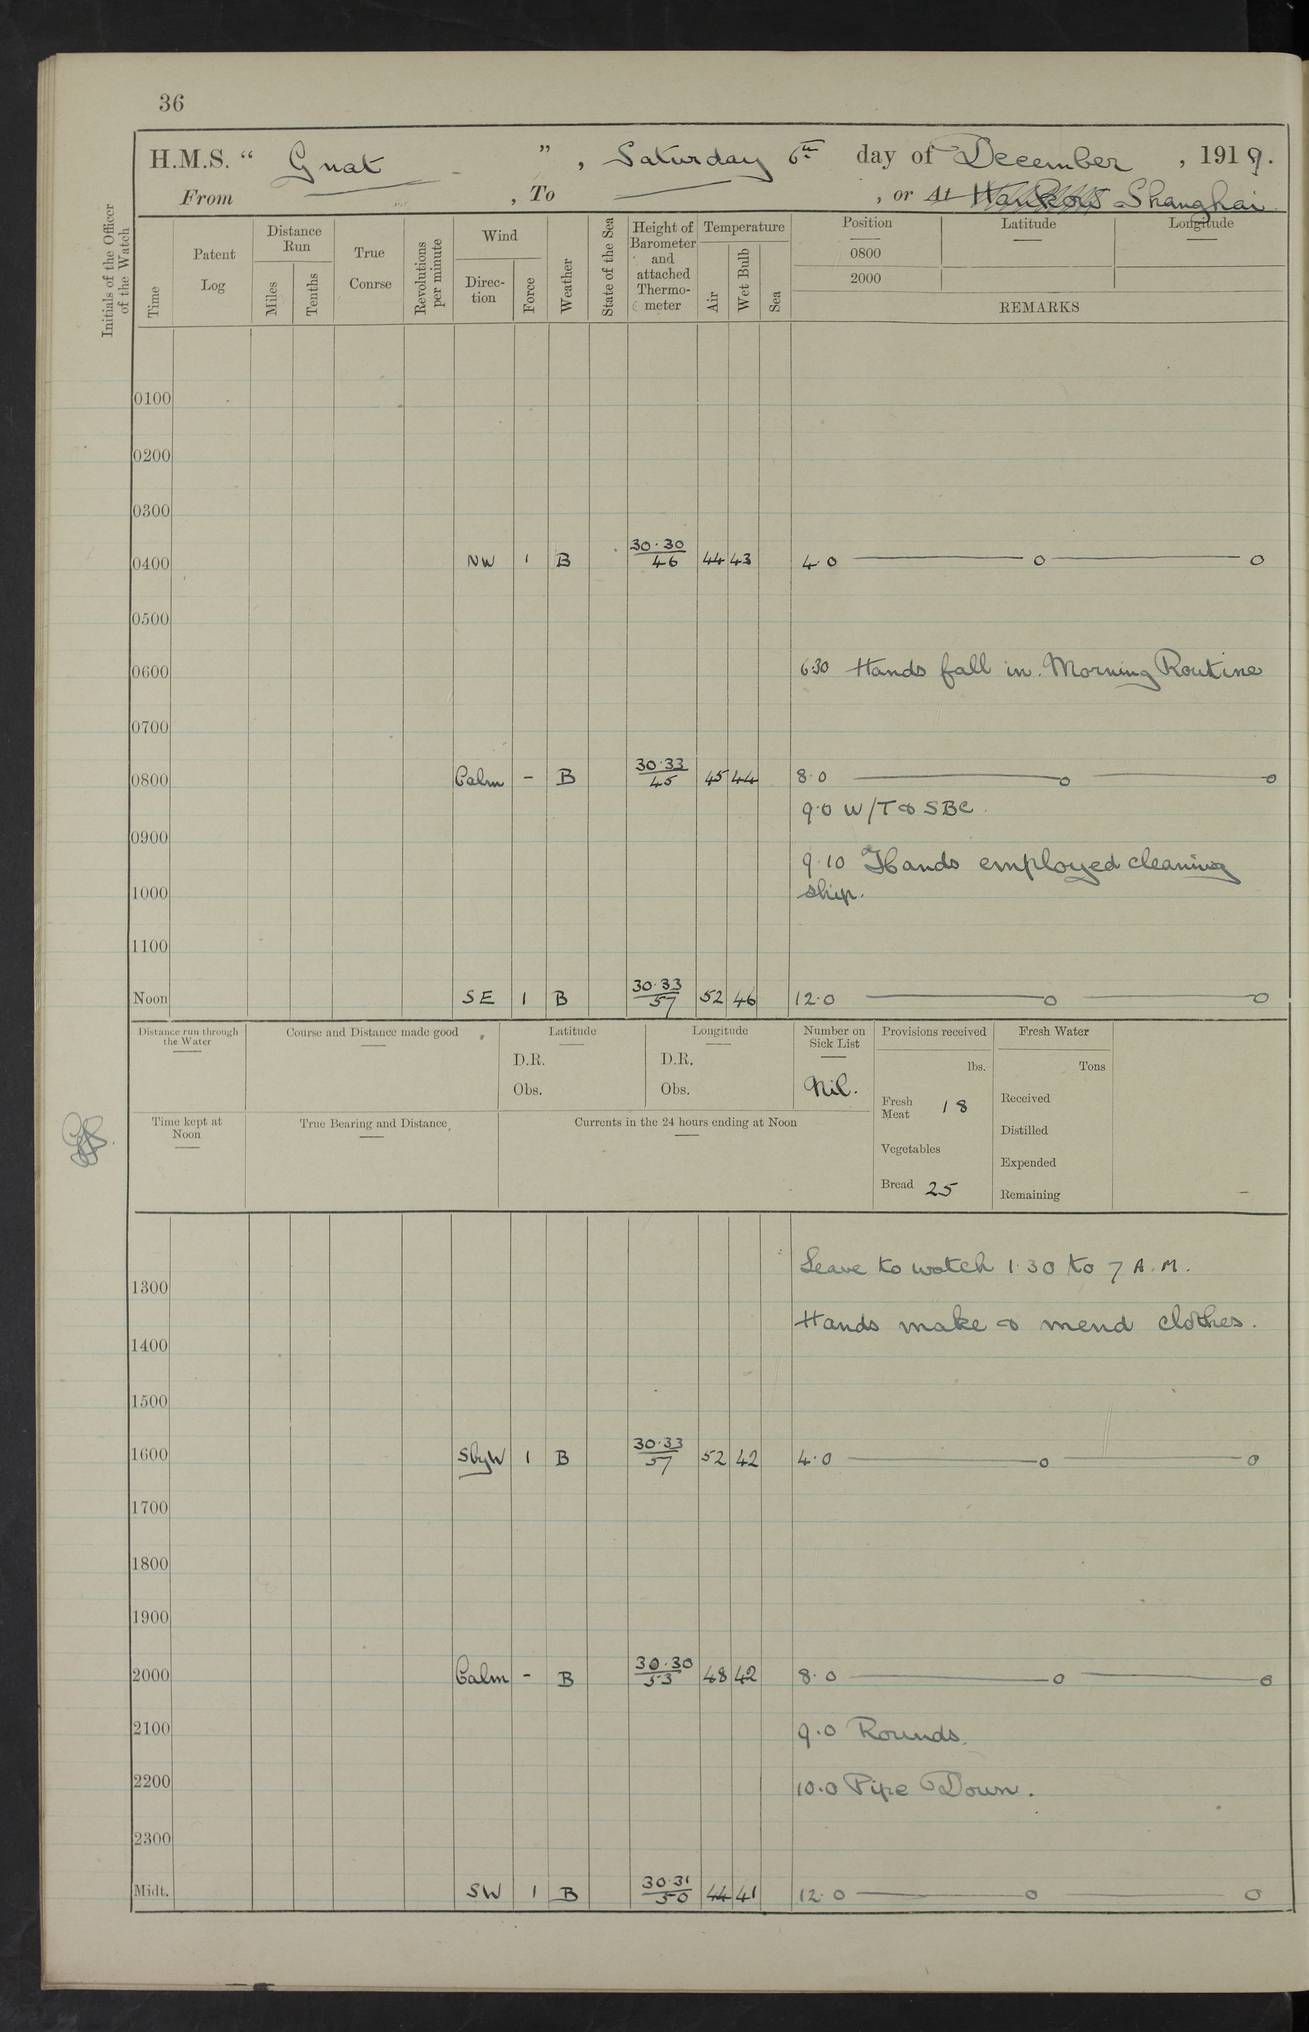 36
H.M.S. " Gnat " , Saturday 6th day of December , 1919.
From , To , or At Shanghai
Initials of the Officer of the Watch
Time
Patent Log
Distance Run
Miles
Tenths
True Course
Revolutions per minute
Wind
Direction
Force
Weather
State of the Sea
Height of Barometer and attached Thermometer
Temperature
Air
Wet Bulb
Sea
Position
Latitude
Longitude
0800
2000
REMARKS
0100
0200
0300
0400 NW 1 B 30·30/46 44 43 4·0 —— o —— o
0500
0600 6·30 Hands fall in. Morning Routine
0700
0800 Calm - B 30·33/45 45 44 8·0 —— o —— o
9·0 W/T & SBC.
0900
9·10 Hands employed cleaning
1000 ship.
1100
Noon SE 1 B 30·33/57 52 46 12·0 —— o —— o
Distance run through the Water
Course and Distance made good
Latitude
D.R.
Obs.
Longitude
D.R.
Obs.
Number on Sick List
Nil.
Provisions received
lbs.
Fresh Meat 18
Vegetables
Bread 25
Fresh Water
Tons
Received
Distilled
Expended
Remaining
Time kept at Noon
True Bearing and Distance
Currents in the 24 hours ending at Noon
Leave to watch 1·30 to 7 A.M.
1300
Hands make & mend clothes.
1400
1500
1600 SbyW 1 B 30·33/57 52 42 4·0 —— o —— o
1700
1800
1900
2000 Calm - B 30·30/53 48 42 8·0 —— o —— o
2100 9·0 Rounds.
2200 10·0 Pipe Down.
2300
Midt. SW 1 B 30·31/50 44 41 12·0 —— o —— o